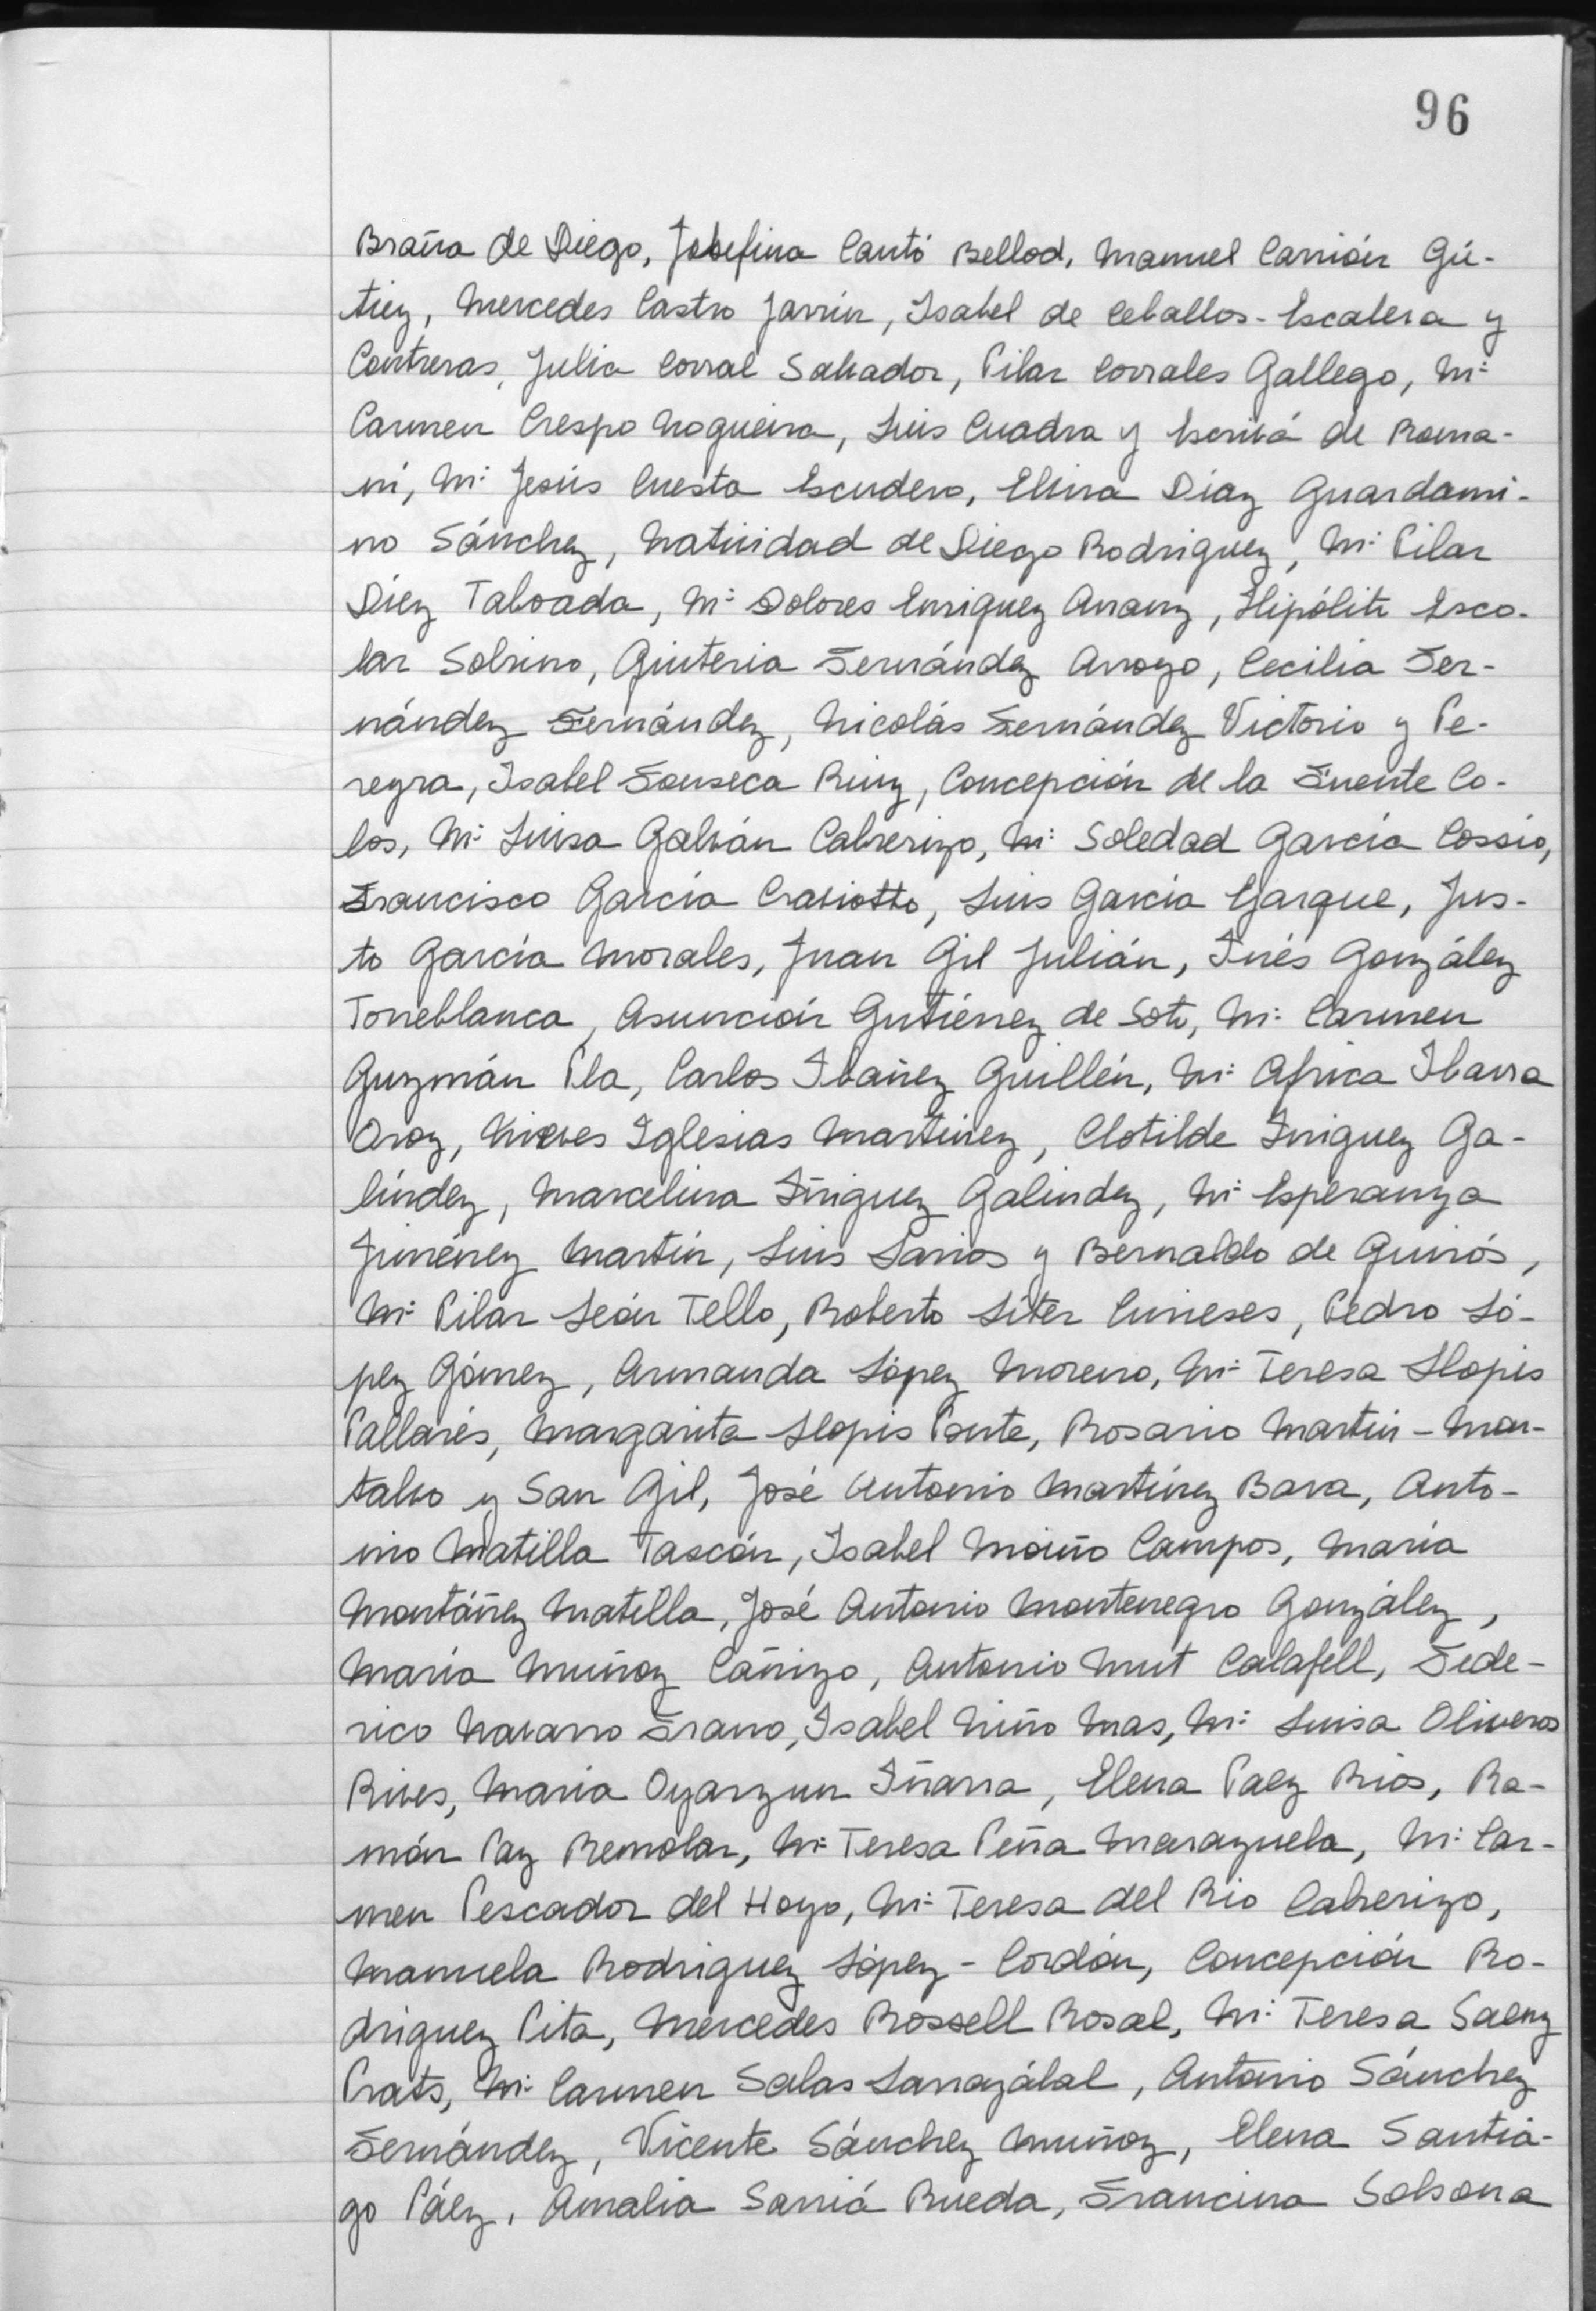 96
Braña de Diego, Josefina Cantó Bellod, Manuel Carrión Gú-
tiez, Mercedes Castro Jarrin, Isabel de Ceballos-Escalera y
Contreras, Julia Corral Salvador, Pilar Corrales Gallego, Mª
Carmen Crespo Nogueira, Luis Cuadra y Escrivá de Roma-
ní, Mª Jesús Cuesta Escudero, Elvira Diaz Guardami-
no Sánchez, Natividad de Diego Rodriguez, Mª Pilar
Diez Taboada, Mª Dolores Enriquez Arranz, Hipólito Esco-
lar Sobrino, Quiteria Fernández Arroyo, Cecilia Fer-
nández Fernández, Nicolás Fernández Victorio y Pe-
reyra, Isabel Fonseca Ruiz, Concepción de la Fuente Co-
bos, Mª Luisa Galván Cabrerizo, Mª Soledad García Cossio,
Francisco García Craviotto, Luis García Ejarque, Jus-
to García Morales, Juan Gil Julián, Inés González
Torreblanca, Asunción Gutiérrez de Soto, Mª Carmen
Guzmán Pla, Carlos Ibañez Guillén, Mª Africa Ibarra
Oroz, Nieves Iglesias Martinez, Clotilde Iñiguez Ga-
líndez, Marcelina Iñiguez Galindez, Mª Esperanza
Jiménez Martín, Luis Larios y Bernaldo de Quirós,
Mª Pilar León Tello, Roberto Liter Curieses, Pedro Ló-
pez Gómez, Armanda López Moreno, Mª Teresa Llopis
Pallarés, Margarita Llopis Ponte, Rosario Martin-Mon-
talvo y San Gil, José Antonio Martínez Bara, Anto-
nio Matilla Tascón, Isabel Moiño Campos, Maria
Montáñez Matilla, José Antonio Montenegro González,
Maria Muñoz Cañizo, Antonio Mut Calafell, Fede-
rico Navarro Franco, Isabel Niño Mas, Mª Luisa Oliveros
Rives, Maria Oyarzun Iñarra, Elena Paez Rios, Ra-
món Paz Remolar, Mª Teresa Peña Marazuela, Mª Car-
men Pescador del Hoyo, Mª Teresa del Rio Cabrerizo,
Manuela Rodriguez López-Cordón, Concepción Ro-
driguez Pita, Mercedes Rossell Rosal, Mª Teresa Saenz
Prats, Mª Carmen Salas Larrazábal, Antonio Sánchez
Fernández, Vicente Sánchez Muñoz, Elena Santia-
go Páez, Amalia Sarriá Rueda, Francina Solsona